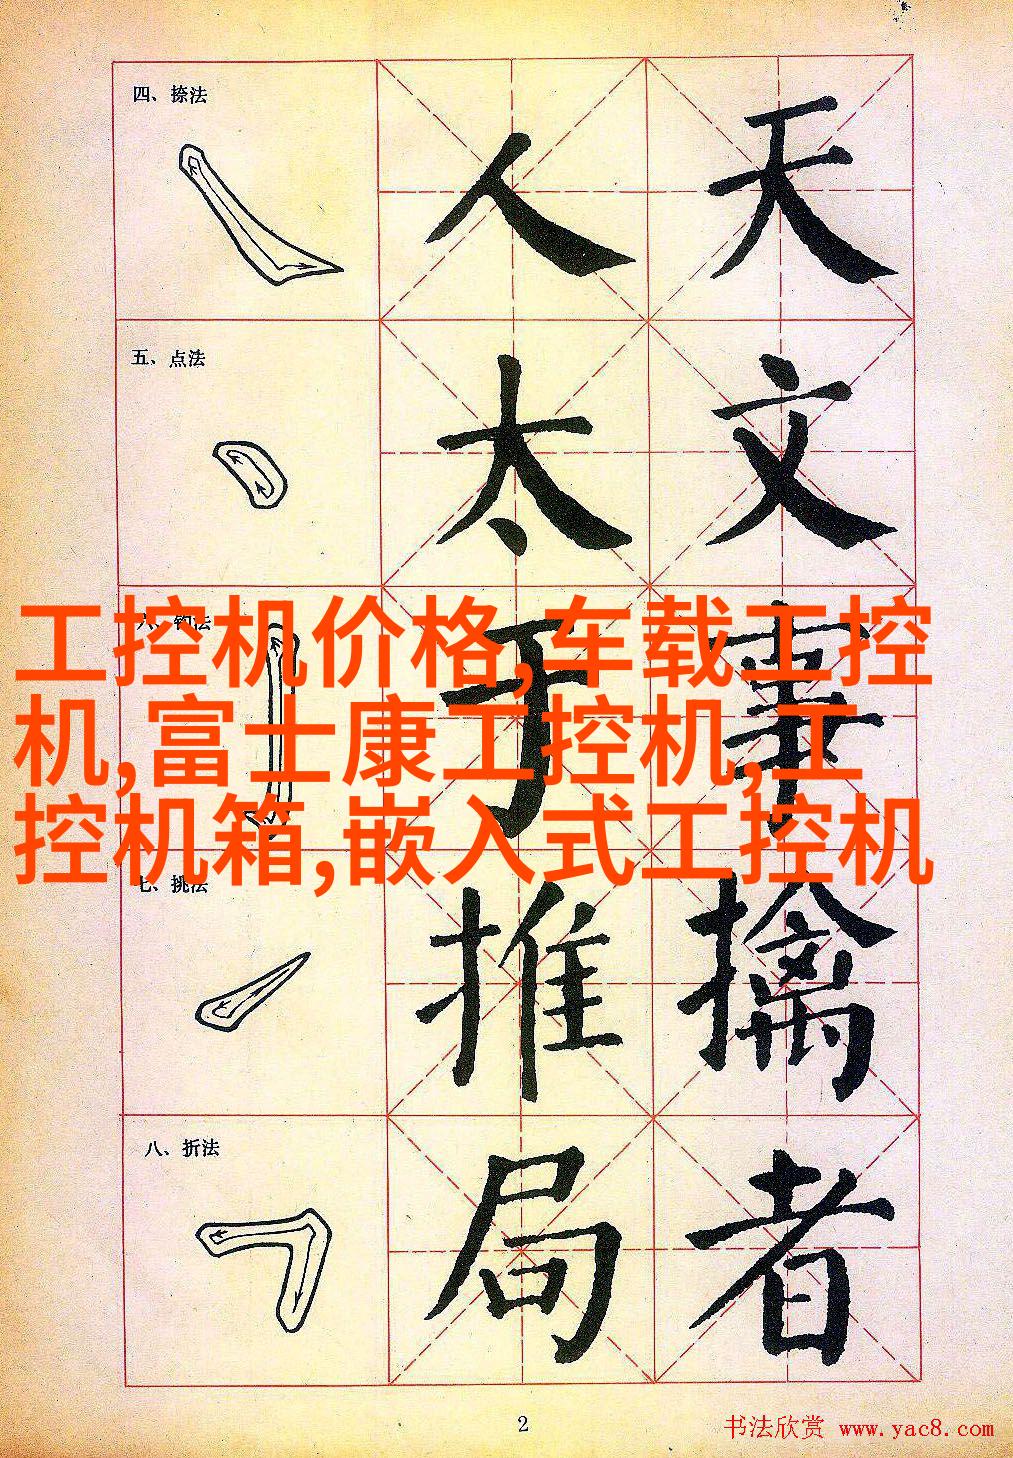 四、捺法
人 天
五、点法
太 文
六、钩法
于 事
工控机价格,车载工控
机,富士康工控机,工
控机箱,嵌入式工控机
七、挑法
推 擒
八、折法
局 者
2
书法欣赏 www.yac8.com